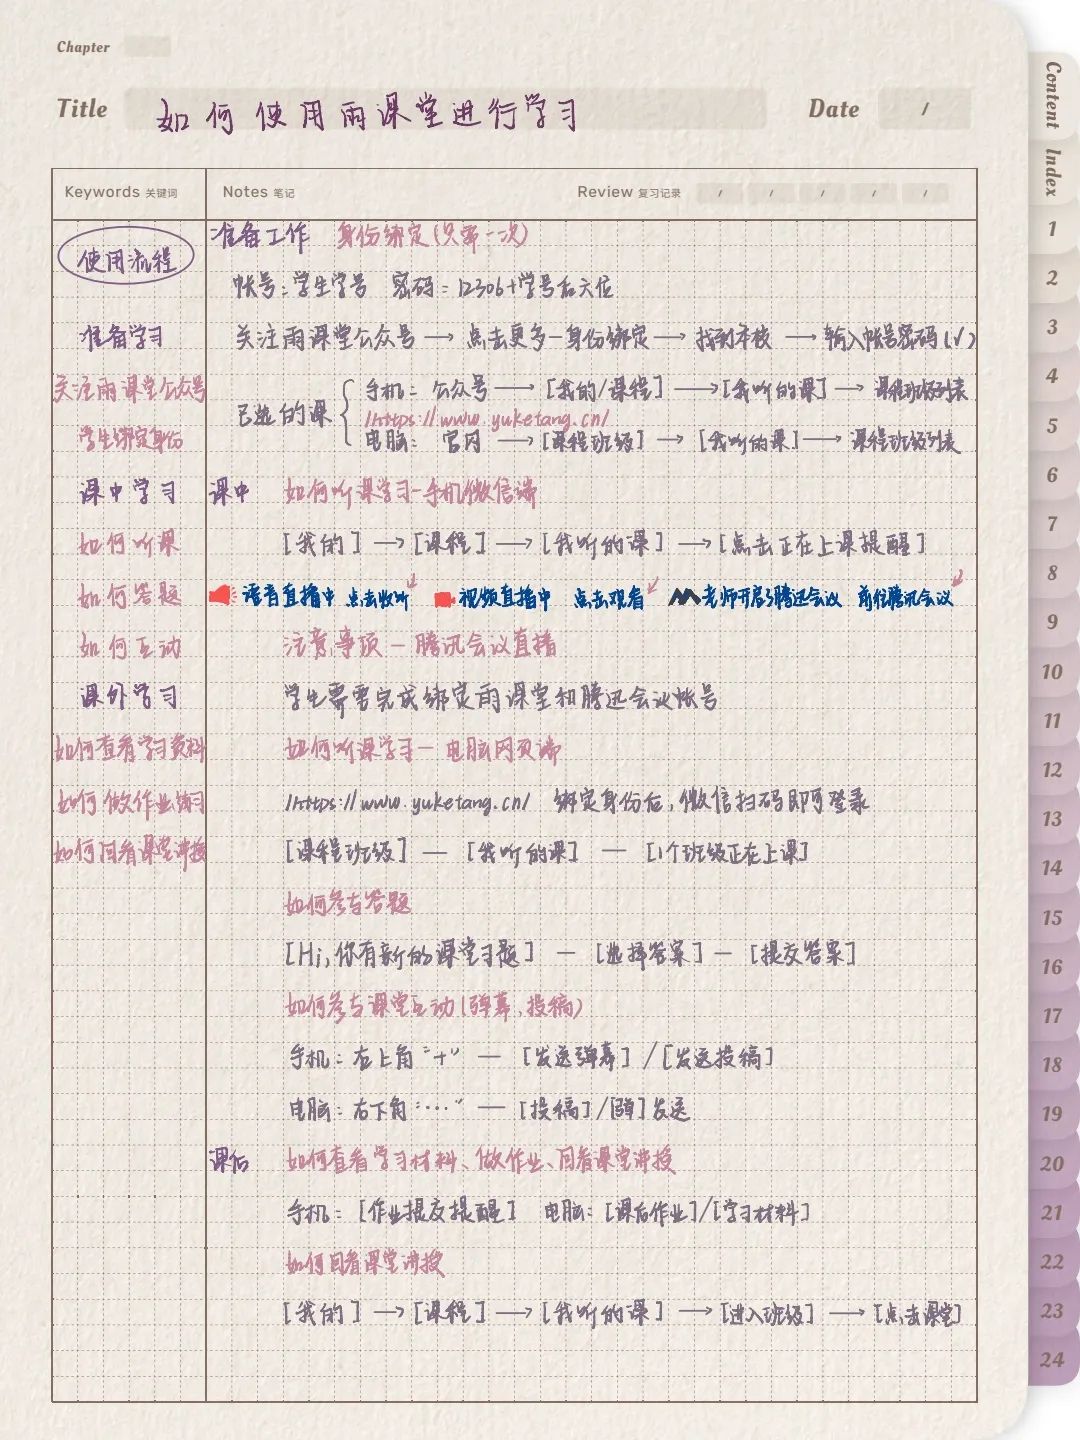 Chapter
Title 如何使用雨课堂进行学习 Date /
Content
Index
Keywords 关键词 Notes 笔记 Review 复习记录 / / / / /
使用流程
准备学习
关注雨课堂公众号
学生绑定身份
课中学习
如何听课
如何答题
如何互动
课外学习
如何查看学习资料
如何做作业练习
如何回看课堂讲授
准备工作 身份绑定(只需一次)
帐号:学生学号 密码:12306+学号后六位
关注雨课堂公众号 → 点击更多-身份绑定 → 找到本校 → 输入帐号密码(√)
已选的课 { 手机: 公众号 → [我的/课程] → [我听的课] → 课程班级列表
https://www.yuketang.cn/
电脑: 官网 → [课程班级] → [我听的课] → 课程班级列表
课中 如何听课学习-手机/微信端
[我的] → [课程] → [我听的课] → [点击正在上课提醒]
语音直播中 点击收听 视频直播中 点击观看 老师开启了腾迅会议 前往腾讯会议
注意事项 - 腾讯会议直播
学生需要完成绑定雨课堂和腾迅会议帐号
如何听课学习 - 电脑网页端
https://www.yuketang.cn/ 绑定身份后,微信扫码即可登录
[课程班级] — [我听的课] — [1个班级正在上课]
如何参与答题
[Hi,你有新的课堂习题] — [选择答案] — [提交答案]
如何参与课堂互动(弹幕,投稿)
手机: 右上角“+” — [发送弹幕] / [发送投稿]
电脑: 右下角“…” — [投稿]/[弹]发送
课后 如何查看学习材料、做作业、回看课堂讲授
手机: [作业提交提醒] 电脑: [课后作业]/[学习材料]
如何回看课堂讲授
[我的] → [课程] → [我听的课] → [进入班级] → [点击课堂]
1
2
3
4
5
6
7
8
9
10
11
12
13
14
15
16
17
18
19
20
21
22
23
24